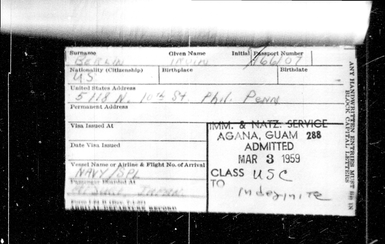 Surname Given Name Initial Passport Number
BERLIN IRVIN 166107
Nationality (Citizenship) Birthplace Birthdate
US
United States Address
5718 N. 10th St Phil. Penn
Permanent Address
Visa Issued At
Date Visa Issued
Vessel Name or Airline & Flight No. of Arrival
NAVY/SPL
Passenger Boarded at
Japan
IMM. & NATZ. SERVICE
AGANA, GUAM 288
ADMITTED
MAR 3 1959
CLASS USC
TO Indefinite
ANY HANDWRITTEN ENTRIES MUST BE IN
BLOCK CAPITAL LETTERS